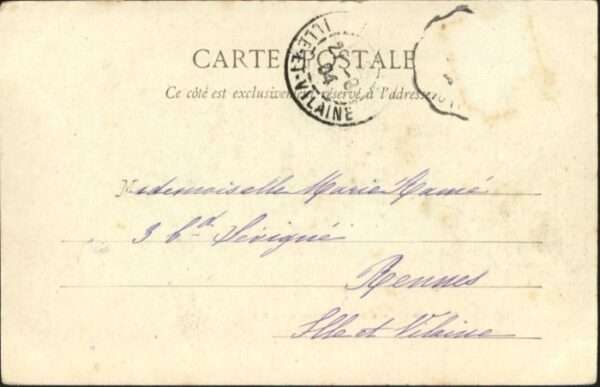 CARTE POSTALE
Ce côté est exclusivement réservé à l'adresse
ILLE-ET-VILAINE
04
Mademoiselle Marie Hamé
3 bd Sévigné
Rennes
Ille et Vilaine